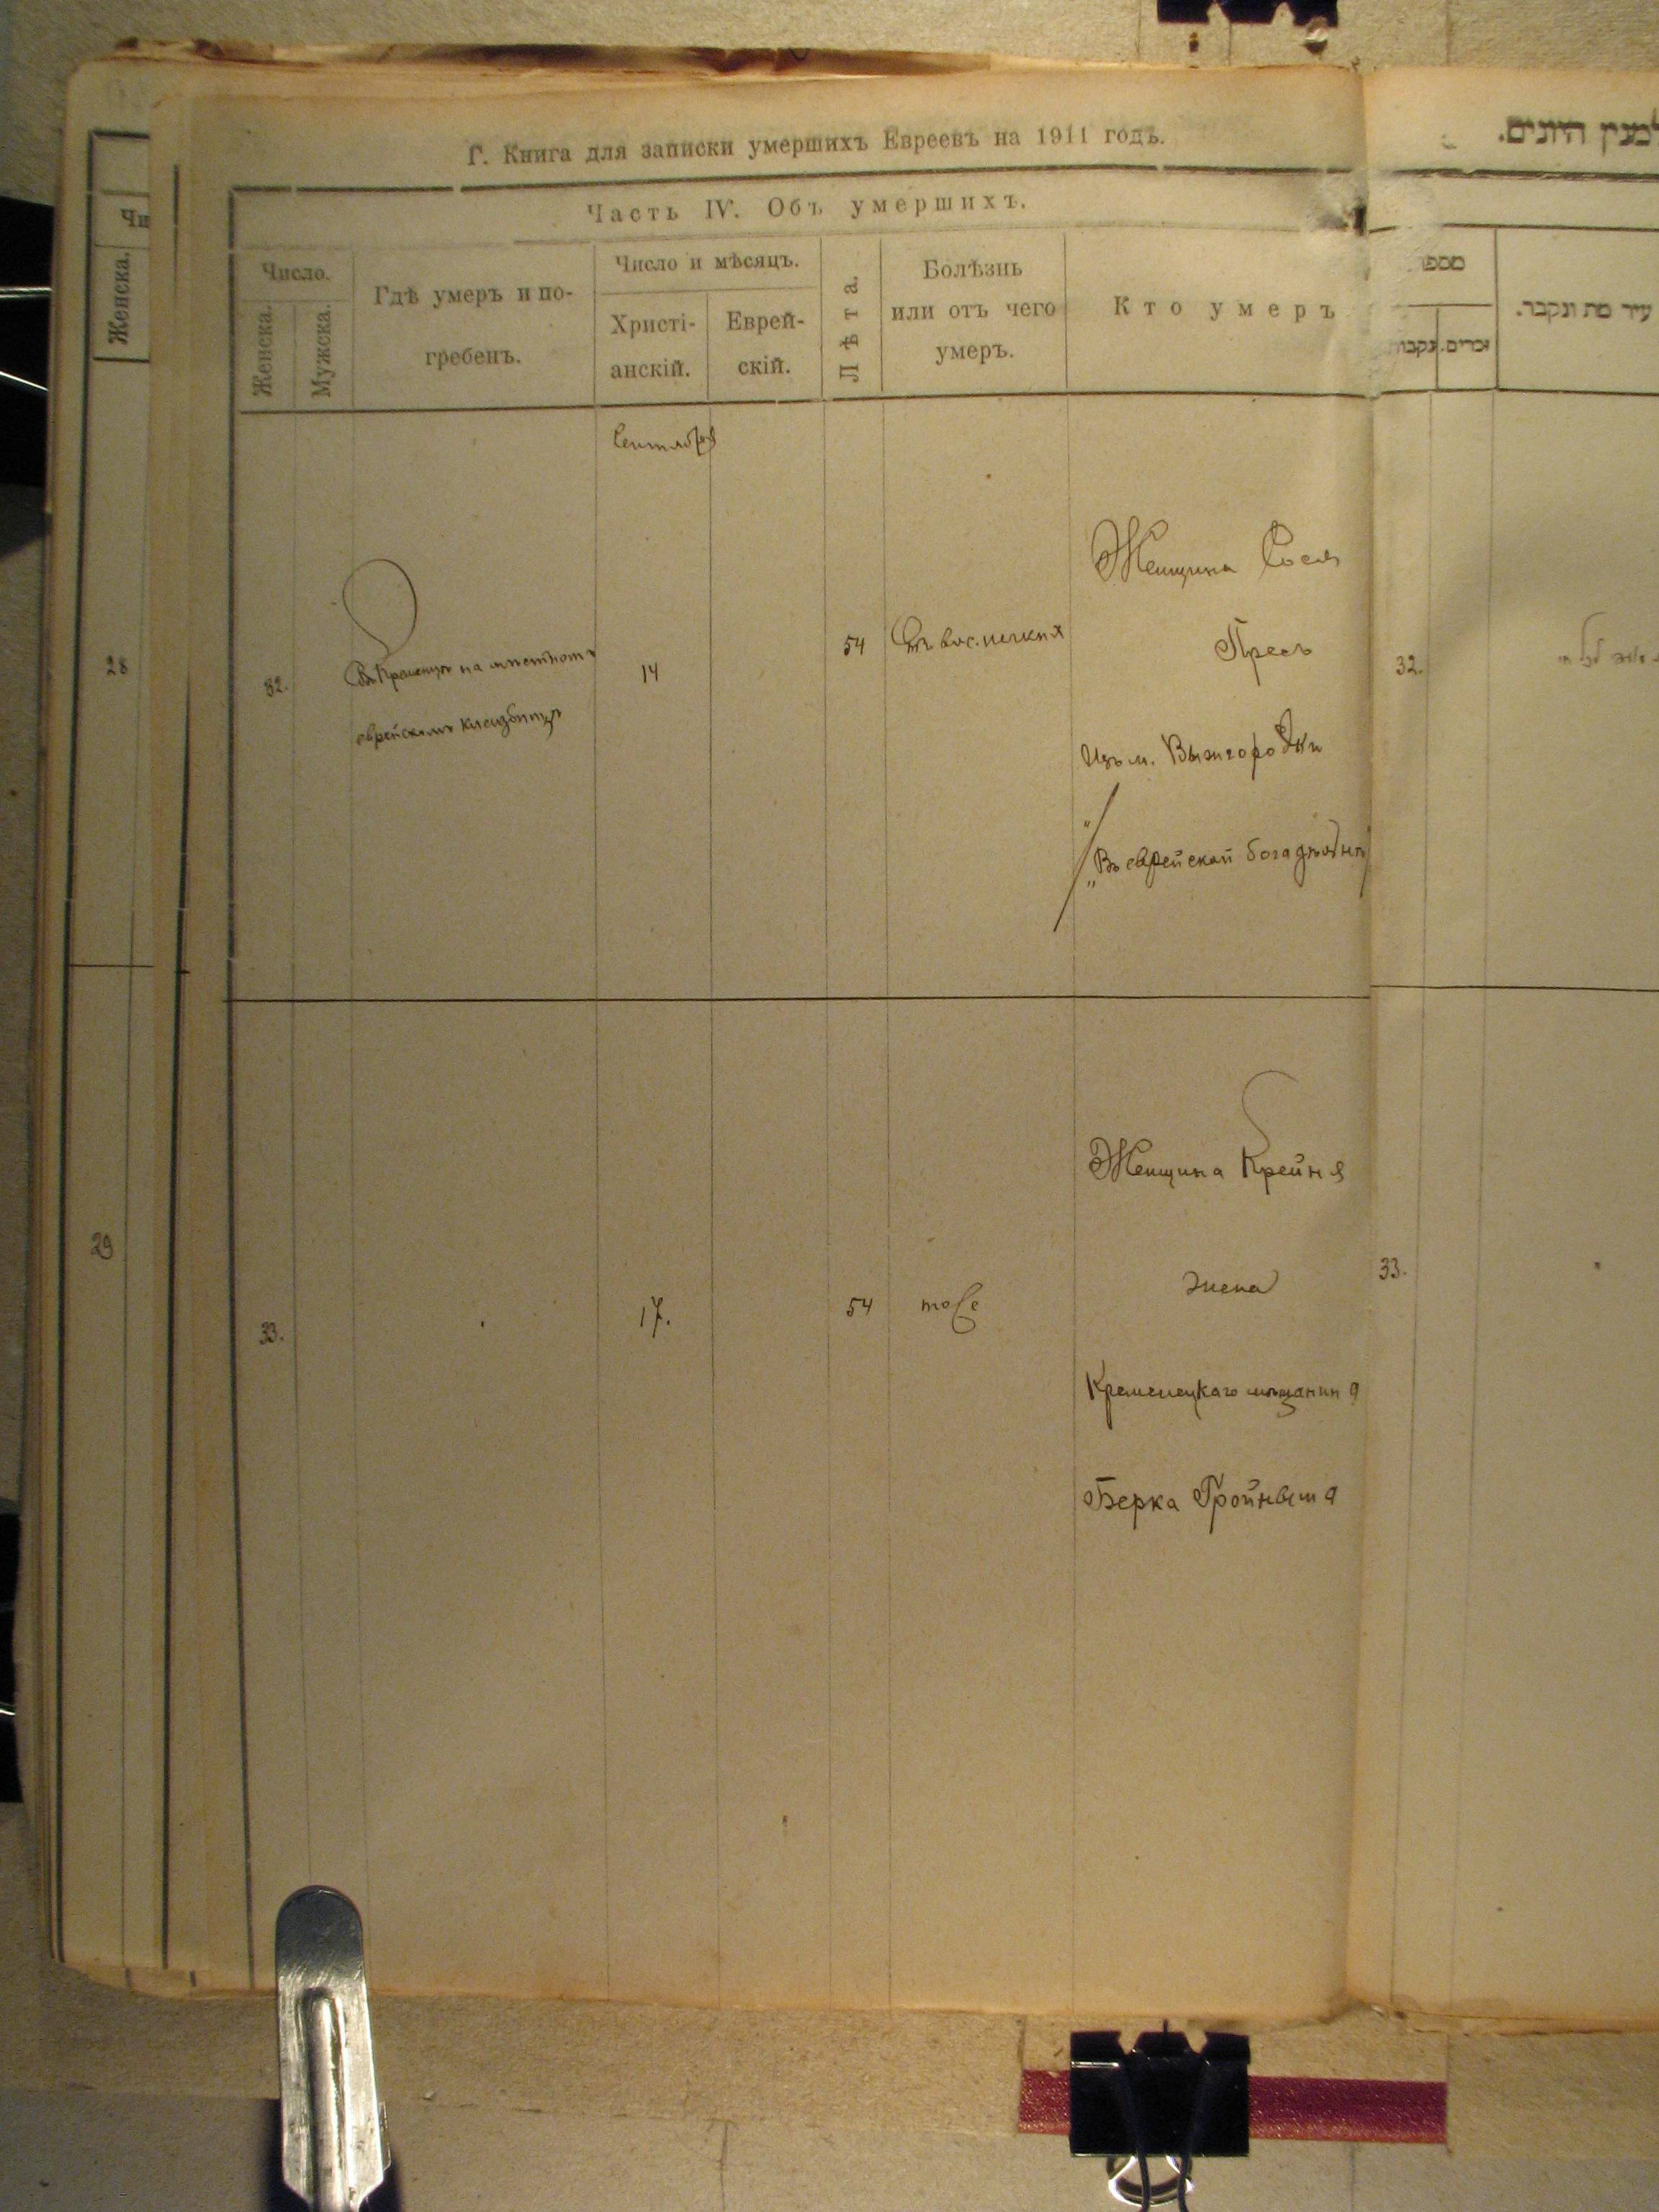 Г. Книга для записки умершихъ Евреевъ на 1911 годъ.
Часть IV. Объ умершихъ.
Число.
Женска.
Мужска.
Гдѣ умеръ и по-
гребенъ.
Число и мѣсяцъ.
Христі-
анскій.
Еврей-
скій.
Лѣта.
Болѣзнь
или отъ чего
умеръ.
Кто умеръ
Сентября
32.
Въ Кременцѣ на мѣстномъ
еврейскомъ кладбищѣ
14
54
Отъ вос. легкихъ
Женщина Сося
Пресъ
Изъ м. Вышгородки
"Въ еврейской богадѣльнѣ"
33.
17.
54
тоже
Женщина Крейня
жена
Кременецкаго мѣщанина
Берка Тройныша
Чи
Женска.
28
29
למנין היונים.
מספר
זכרים.
נקבות
עיר מת ונקבר.
32.
33.